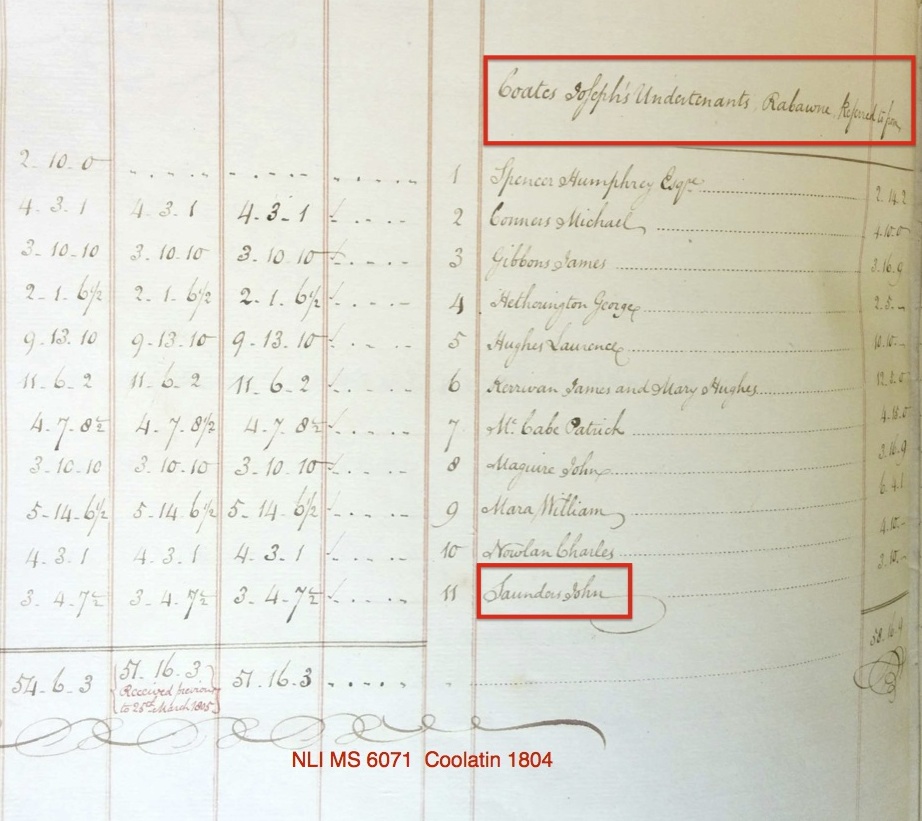 Coates Joseph's Undertenants, Rabawne, Referred to from
2-10-0 1 Spencer Humphrey Esqre 2.14.2
4.3.1 4.3.1 4.3.1 2 Connors Michael 4.10.0
3-10-10 3.10.10 3.10.10 3 Gibbons James 3.16.9
2-1-6½ 2-1.6½ 2.1.6½ 4 Hetherington George 2.5.-
9-13.10 9-13.10 9-13.10 5 Hughes Laurence 10.10.-
11-6.2 11.6.2 11.6.2 6 Kerrivan James and Mary Hughes
4.7.8½ 4.7.8½ 4.7.8½ 7 Mc Cabe Patrick 4.15.0
3.10.10 3.10.10 3.10.10 8 Maguire John 3.16.9
5-14.6½ 5-14.6½ 5-14.6½ 9 Mara William 6.4.1
4.3.1 4.3.1 4.3.1 10 Nowlan Charles 4.10.-
3.4.7½ 3.4.7½ 3.4.7½ 11 Saunders John 3.10.-
54.6.3 51.16.3 51.16.3 58.16.9
Received previous
to 25th March 1805
NLI MS 6071 Coolatin 1804